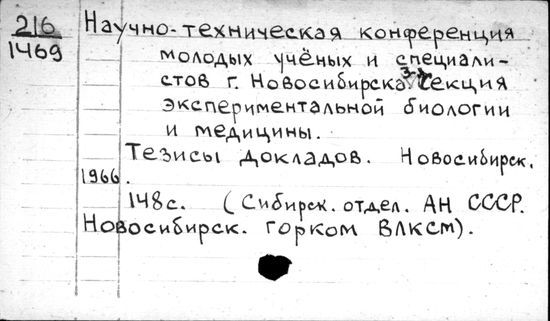 216
1469
Научно-техническая конференция
молодых учёных и специали-
стов г. Новосибирска. 3-я секция
экспериментальной биологии
и медицины.
Тезисы докладов. Новосибирск.
1966.
148с. (Сибирск. отдел. АН СССР.
Новосибирск. горком ВЛКСМ).